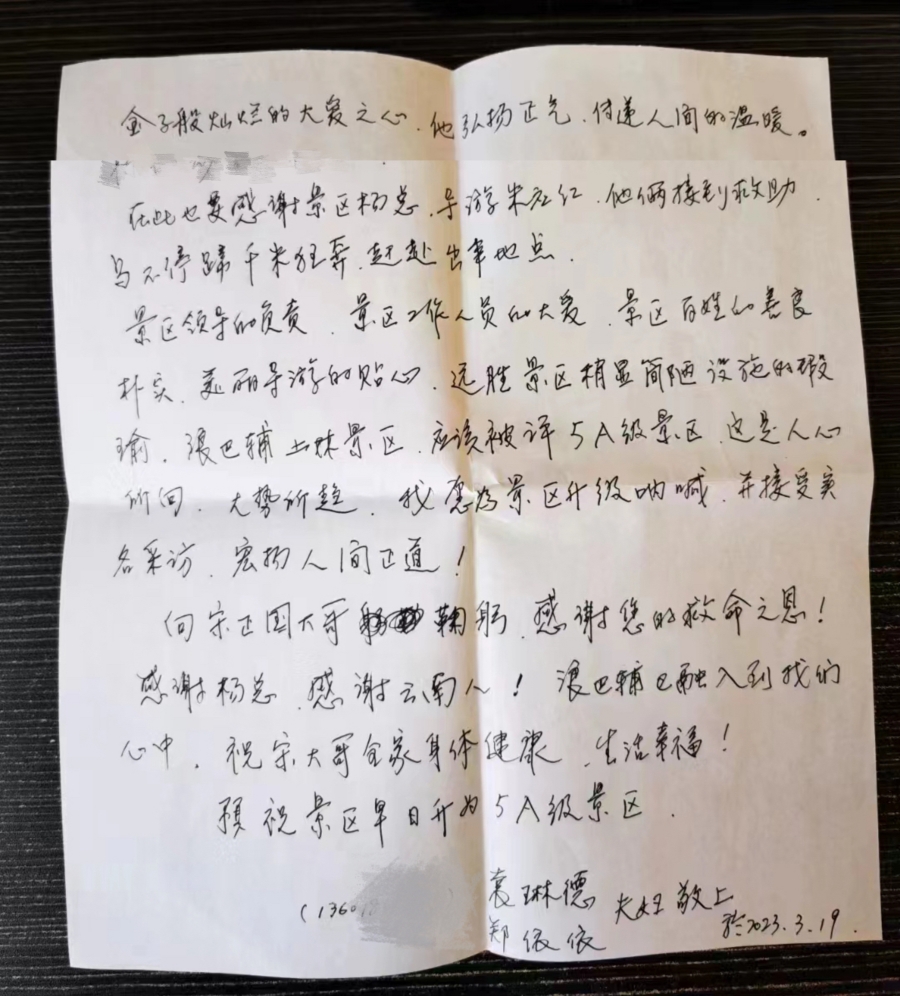 金子般灿烂的大爱之心，他弘扬正气，传递人间的温暖。
在此也要感谢景区杨总，导游朱应红，他俩接到救助，
马不停蹄千米狂奔，赶赴出事地点．
景区领导的负责，景区工作人员的大爱，景区百姓的善良
朴实，美丽导游的贴心，远胜景区稍显简陋设施的瑕
瑜，浪巴铺土林景区，应该被评5A级景区，这是人心
所向，大势所趋，我愿为景区升级呐喊，并接受实
名采访，宏扬人间正道！
向宋正国大哥鞠躬，感谢您的救命之恩！
感谢杨总，感谢云南人！浪巴辅已融入到我们
心中，祝宋大哥全家身体健康，生活幸福！
预祝景区早日升为5A级景区．
袁琳德
郑依依 夫妇敬上
(136
于2023.3.19.